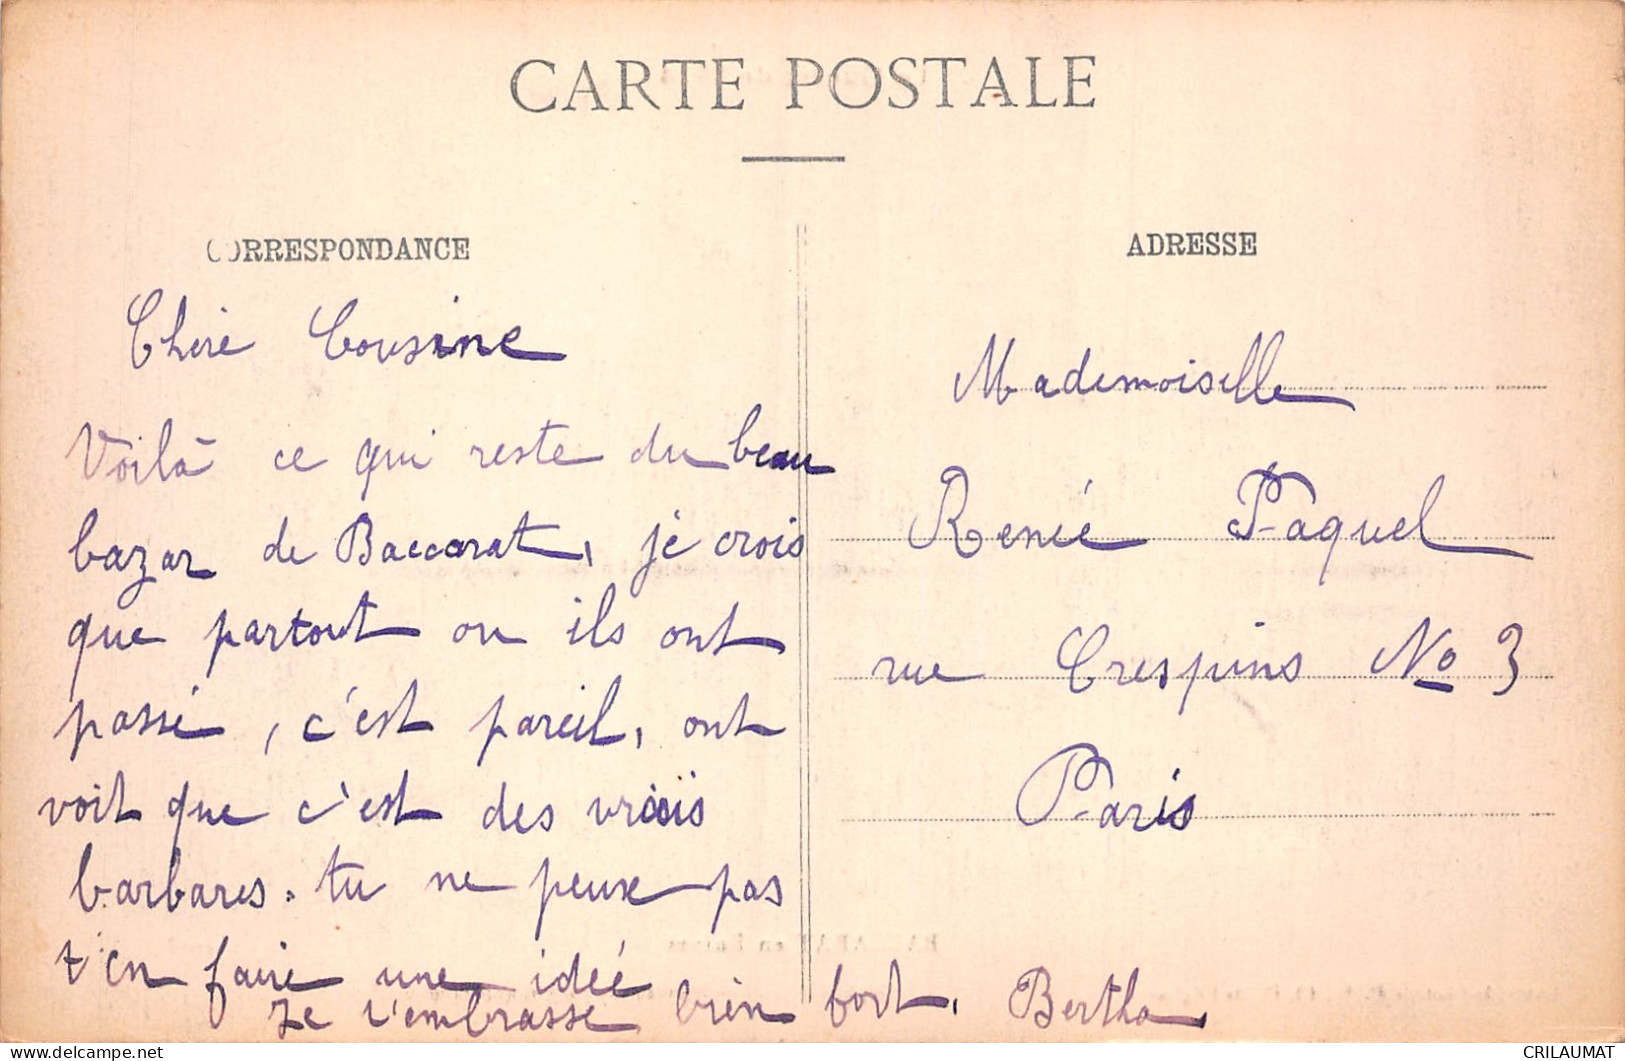 CARTE POSTALE
CORRESPONDANCE
Chère Cousine
Voilà ce qui reste du beau
bazar de Baccarat, je crois
que partout ou ils ont
passé, c'est pareil, ont
voit que c'est des vrais
barbares. tu ne peux pas
t'en faire une idéé
Je t'embrasse bien fort. Bertha
ADRESSE
Mademoiselle
Renée Paquel
rue Crespins No 3
Paris
CRILAUMAT